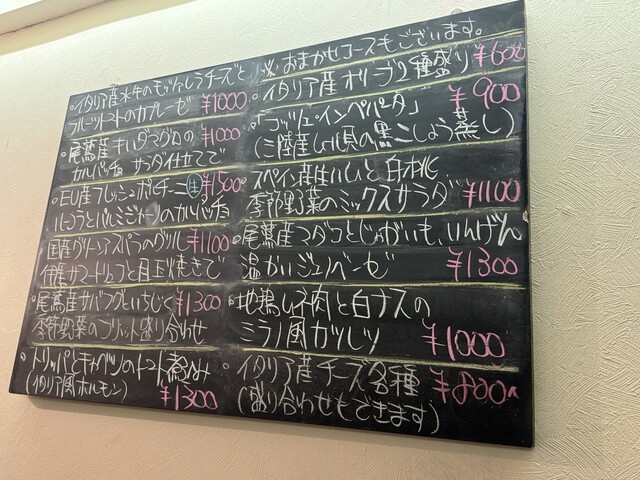 ※おまかせコースもございます。
・イタリア産水牛のモッツァレラチーズと
フルーツトマトのカプレーゼ ¥1000
・尾鷲産キハダマグロの ¥1000
カルパッチョ サラダ仕立てで
・EU産フレッシュポルチーニ 生 ¥1500
とパルミジャーノのカルパッチョ
・国産グリーンアスパラのグリル ¥1100
伊産サマートリュフと目玉焼きで
・尾鷲産サバフグといちじく ¥1300
季節野菜のフリット盛り合わせ
・トリッパとキャベツのトマト煮込み
(イタリア風ホルモン) ¥1300
・イタリア産オリーブ2種盛り ¥600
・「コッツェ・インペパータ」 ¥900
(三陸産ムール貝の黒こしょう蒸し)
・スペイン産生ハムと白桃、
季節野菜のミックスサラダ ¥1100
・尾鷲産マダコとじゃがいも、いんげん
温かいジェノベーゼ ¥1300
・地鶏ムネ肉と白ナスの
ミラノ風カツレツ ¥1000
・イタリア産チーズ各種 ¥800〜
(盛り合わせもできます)